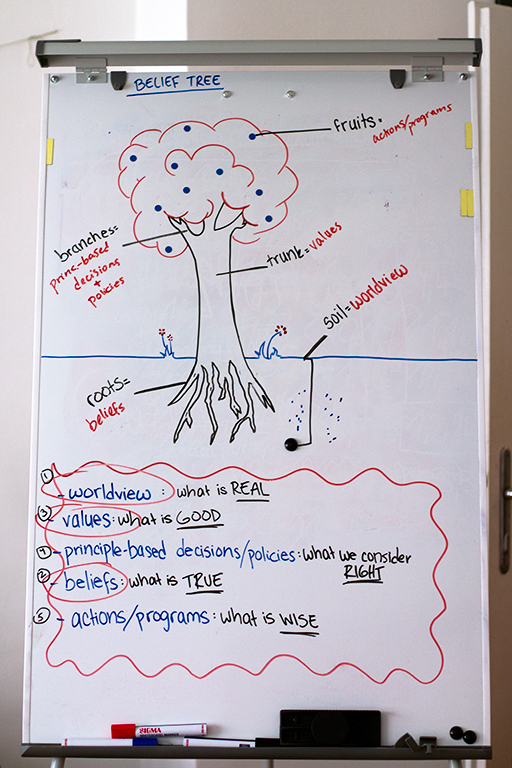 BELIEF TREE
fruits=
actions/programs
branches=
princ-based
decisions
+
policies
trunk=values
soil=worldview
roots=
beliefs
① - worldview : what is REAL
③ - values: what is GOOD
④ - principle-based decisions/policies: what we consider
RIGHT
② - beliefs: what is TRUE
⑤ - actions/programs: what is WISE
SIGMA